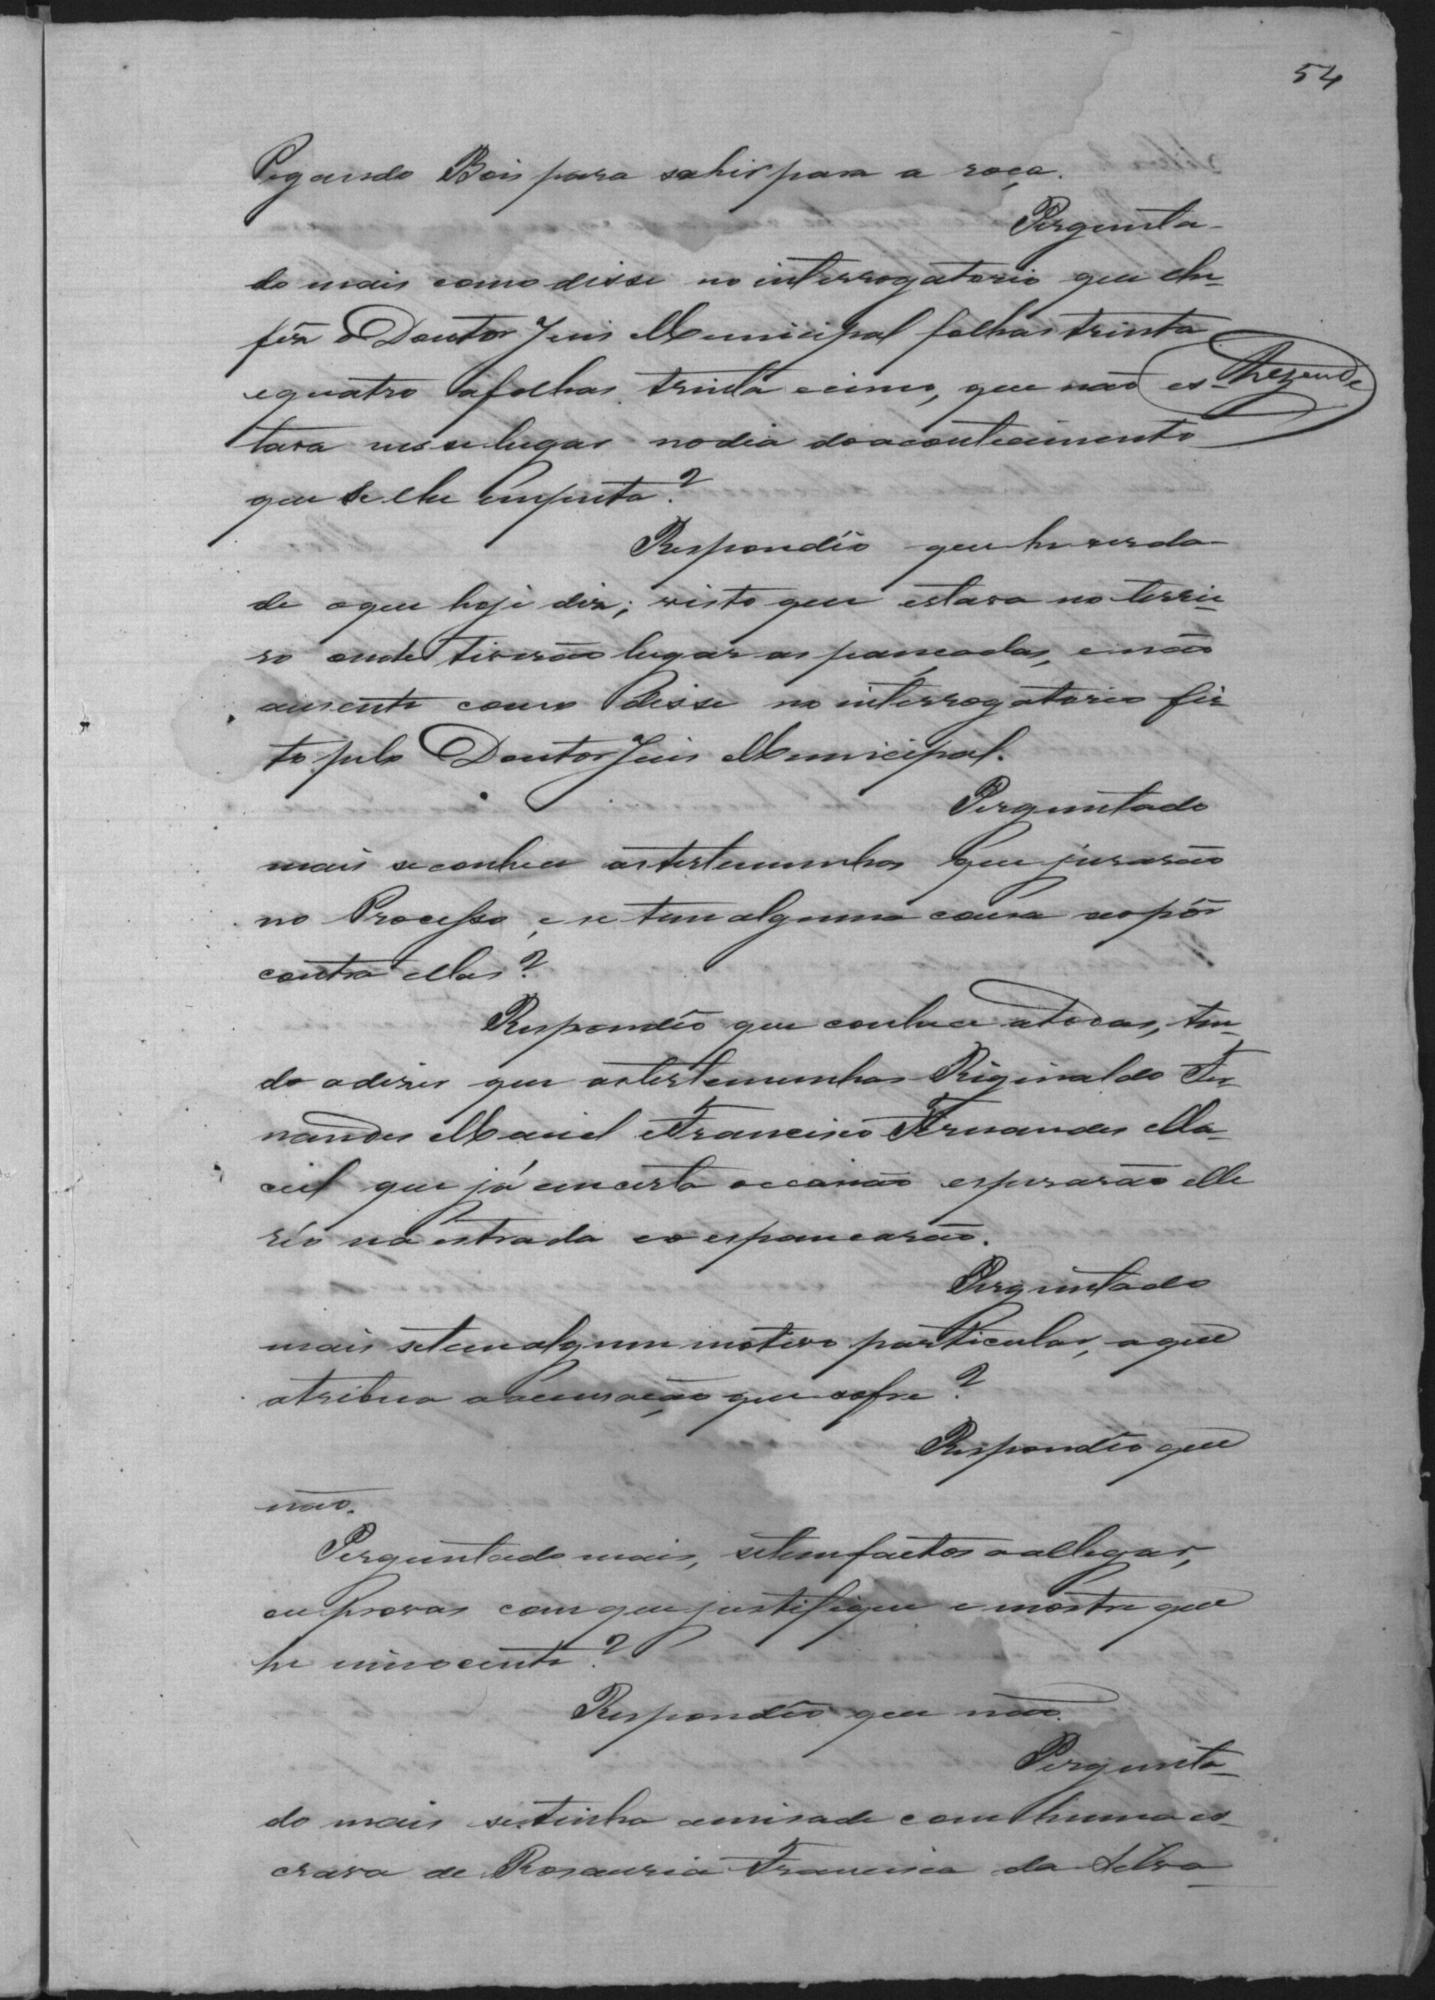 54
Pegando Bois para sahir para a roça.
Pergunta-
do mais como disse no interrogatorio que lhe
fêz o Doutor Juis Municipal folhas trinta
e quatro a folhas trinta e cinco, que não es-
Rezende
tava nesse lugar no dia do acontecimento
que se lhe imputa?
Respondêo que he verda-
de o que hoje diz; visto que estava no terrei-
ro onde tiverão lugar as pancadas, e não
ausente como disse no interrogatorio fei-
to pelo Doutor Juis Municipal.
Perguntado
mais se conhece as testemunhas que jurarão
no Processo, e se tem alguma cousa a opôr
contra ellas?
Respondêo que conhece a todas, ten-
do a dizer que as testemunhas Reginaldo Fer-
nandes Maciel e Francisco Fernandes Ma-
ciel que já em certa occasião esperarão elle
réo na estrada e o espancarão.
Perguntado
mais se tem algum motivo particular, a que
atribua a accusação que sofre?
Respondêo que
não.
Perguntado mais, se tem factos a allegar,
ou provas com que justifique e mostre que
he innocente?
Respondêo que não.
Pergunta-
do mais se tinha amisade com huma es-
crava de Rosauria Francisca da Silva